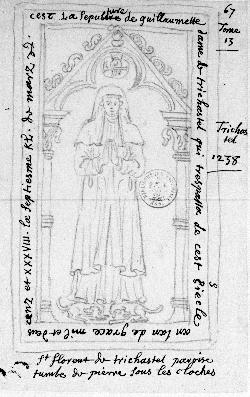 cest La sepulture de guillaumette
dame de trichastel qui trespassa de cest siecle
an lan de grace mil et deus
Cenz et XXXVIII. la septiesme kl. de mars.
67
Tome
13
Trichas
tel
1238
St florent de trichastel paroise
tumbe de pierre sous les cloches